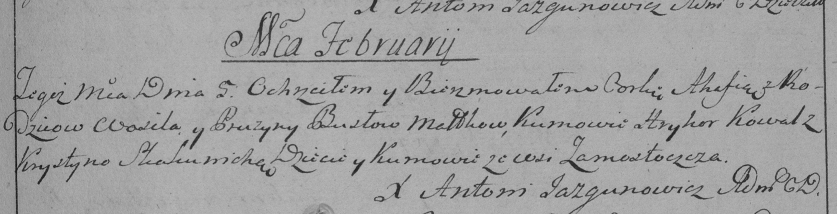 X Antoni Jazgunowicz Adm
Mca Februarij
Tegoż Mca Dnia 5. Ochrzciłem y Bierzmowałem Corkię Ahafią z Ro-
Dzicow Wasila, y Pruzyny Busłow Małłkow, Kumowie Hryhor Kowal z
Krystyno Dziecie y Kumowie ze wsi Zamostocza.
X Antoni Jazgunowicz Adm CD.